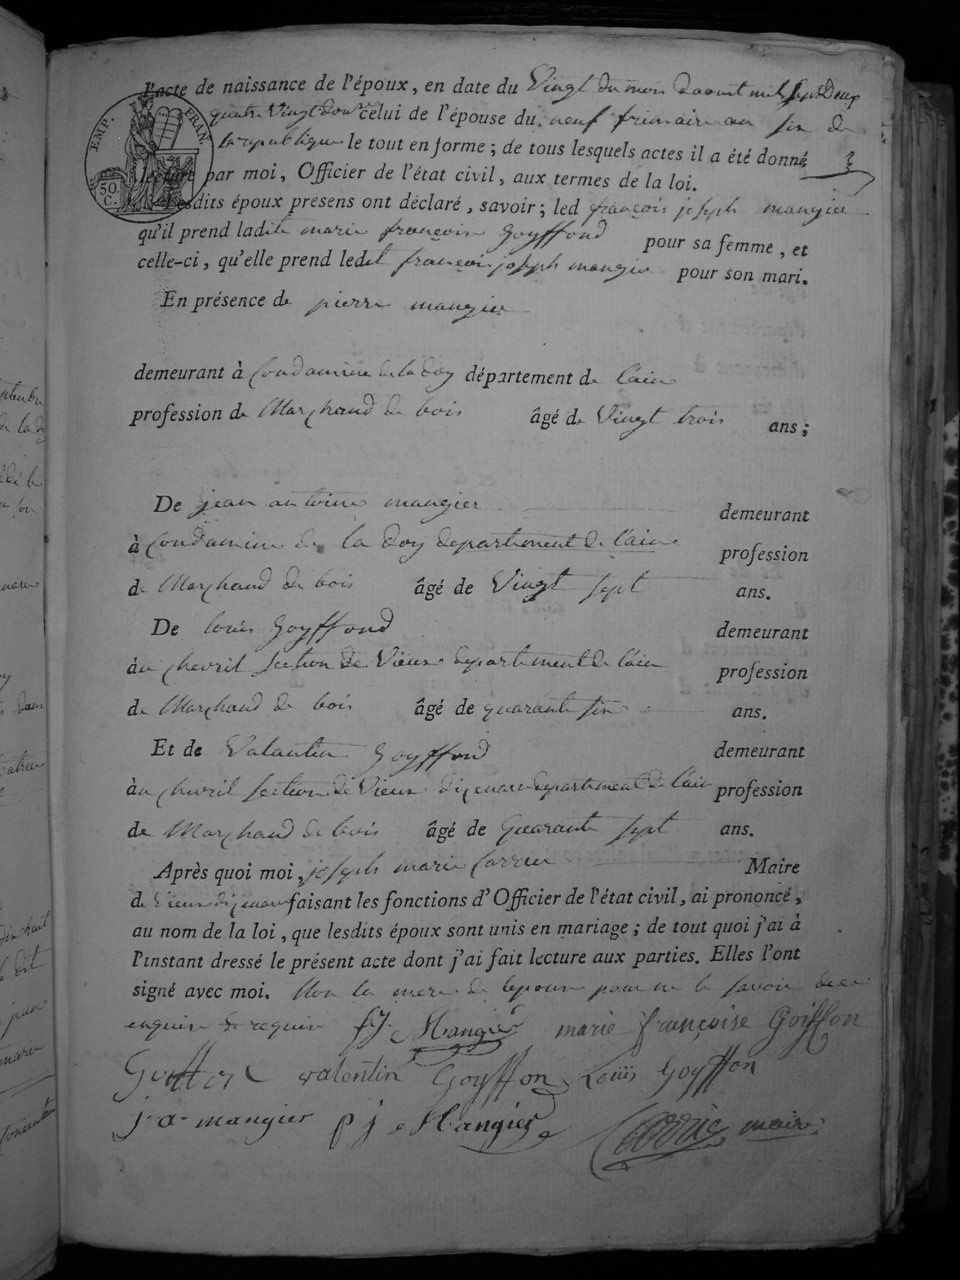 l'acte de naissance de l'époux, en date du Vingt du mois d'aout mil sept Cens
quatre Vingt douze celui de l'épouse du neuf frimaire an six de
la republique le tout en forme ; de tous lesquels actes il a été donné
lecture par moi, Officier de l'état civil, aux termes de la loi.
Lesdits époux présens ont déclaré, savoir ; led françois joseph mangier
qu'il prend ladite marie françoise Goyffond pour sa femme, et
celle-ci, qu'elle prend ledit françois joseph mangier pour son mari.
En présence de pierre mangier
demeurant à Condamine de la doy département de l'ain
profession de Marchand de bois âgé de Vingt trois ans ;
De jean antoine mangier demeurant
à Condamine de la Doy departement de l'ain profession
de Marchand de bois âgé de Vingt sept ans.
De louis Goyffond demeurant
àu chevril section de Vieux departement de l'ain profession
de Marchand de bois âgé de quarante six ans.
Et de Valentin Goyffond demeurant
àu chevril section de Vieux departement de l'ain profession
de Marchand de bois âgé de Quarante sept ans.
Après quoi moi, joseph marie Carrier Maire
de Vieux faisant les fonctions d'Officier de l'état civil, ai prononcé,
au nom de la loi, que lesdits époux sont unis en mariage ; de tout quoi j'ai à
l'instant dressé le présent acte dont j'ai fait lecture aux parties. Elles l'ont
signé avec moi. Non la mere de l'epoux pour ne le savoir de ce
enquise et requise f j Mangier marie françoise Goiffon
valentin Goyffon Louïs Goyffon
j a mangier p j Mangier maire
EMP. FRAN.
50.
C.